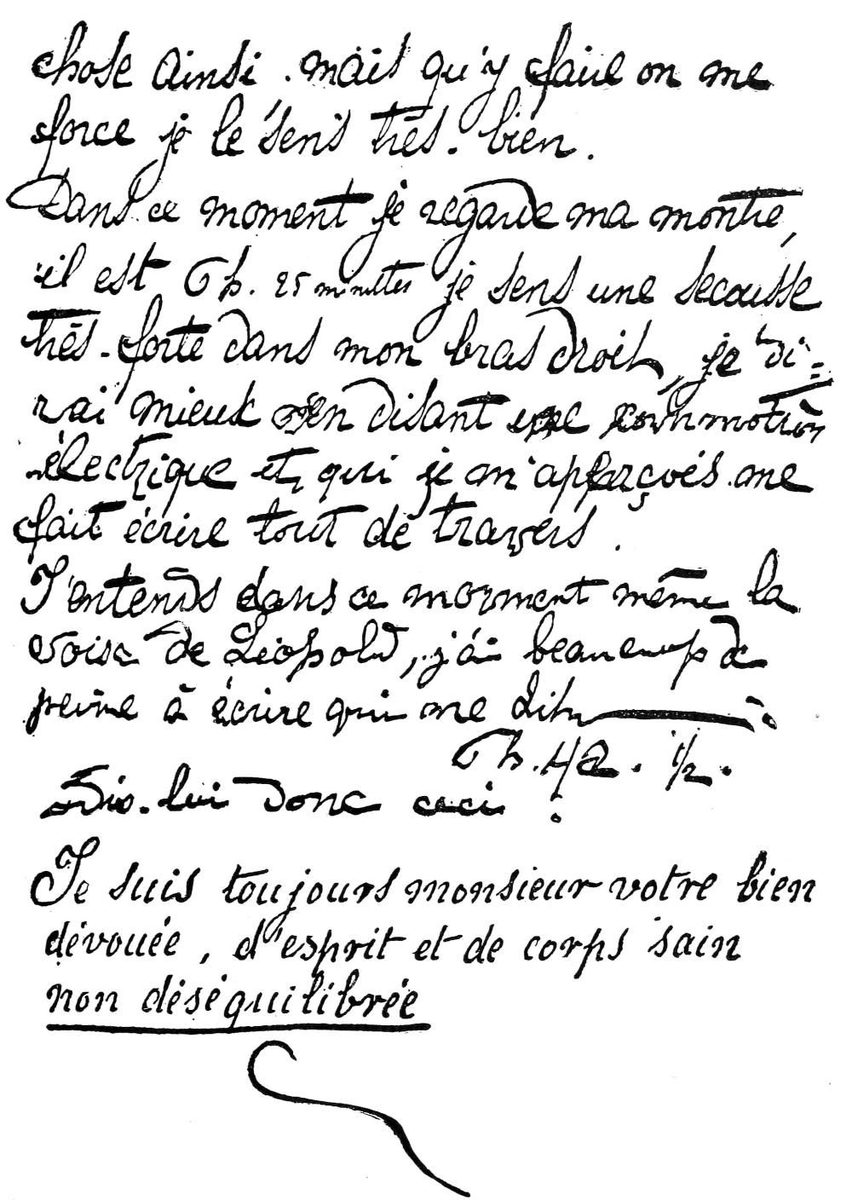 chose ainsi. mais qu'y faire on me
force je le sens très-bien.
Dans ce moment je regarde ma montre,
il est 9h. 25 minutes je sens une secousse
très-forte dans mon bras droit, je di=
rai mieux en disant une commotion
électrique et, qui je m'apperçoés me
fait écrire tout de travers.
J'entends dans ce moment même la
voix de Léopold, j'ai beaucoup de
peine à écrire qui me dit:
9h. 42. 1/2.
Dis-lui donc ceci :
Je suis toujours monsieur votre bien
dévouée, d'esprit et de corps sain
non déséquilibrée